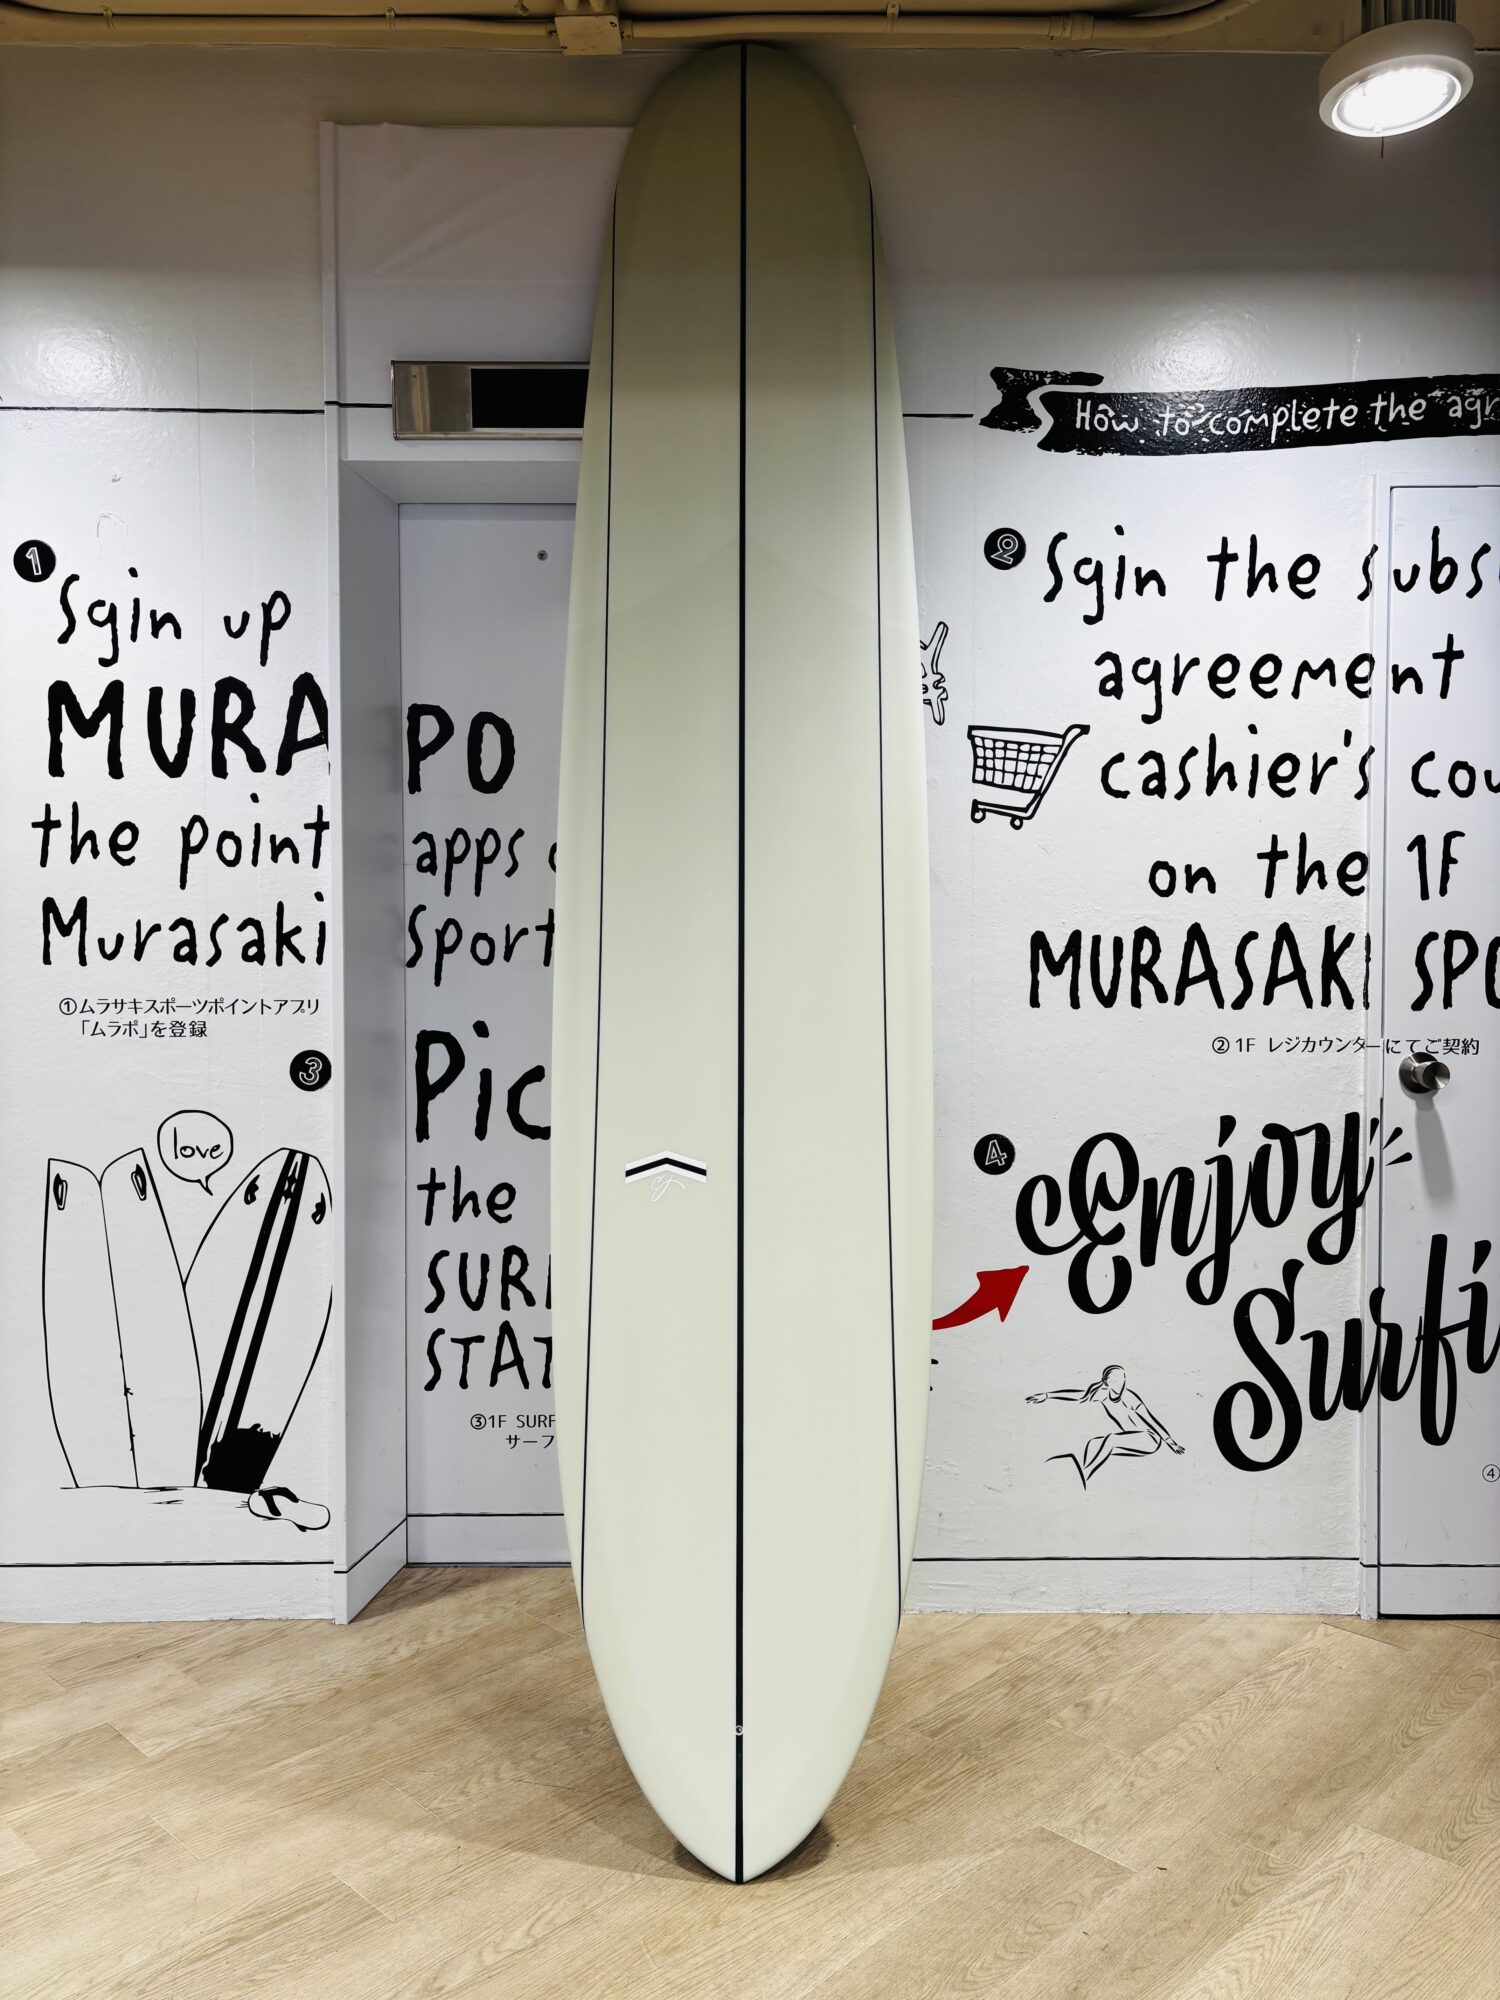 1
Sgin up
MURA PO
the point apps
Murasaki Sport
①ムラサキスポーツポイントアプリ
「ムラポ」を登録
3
Pic
the
SURF
STAT
③1F SURF
サーフ
love
How to complete the agr
2
Sgin the subs
agreement
cashier's cou
on the 1F
MURASAKI SPO
②1F レジカウンターにてご契約
4
Enjoy
Surfi
④